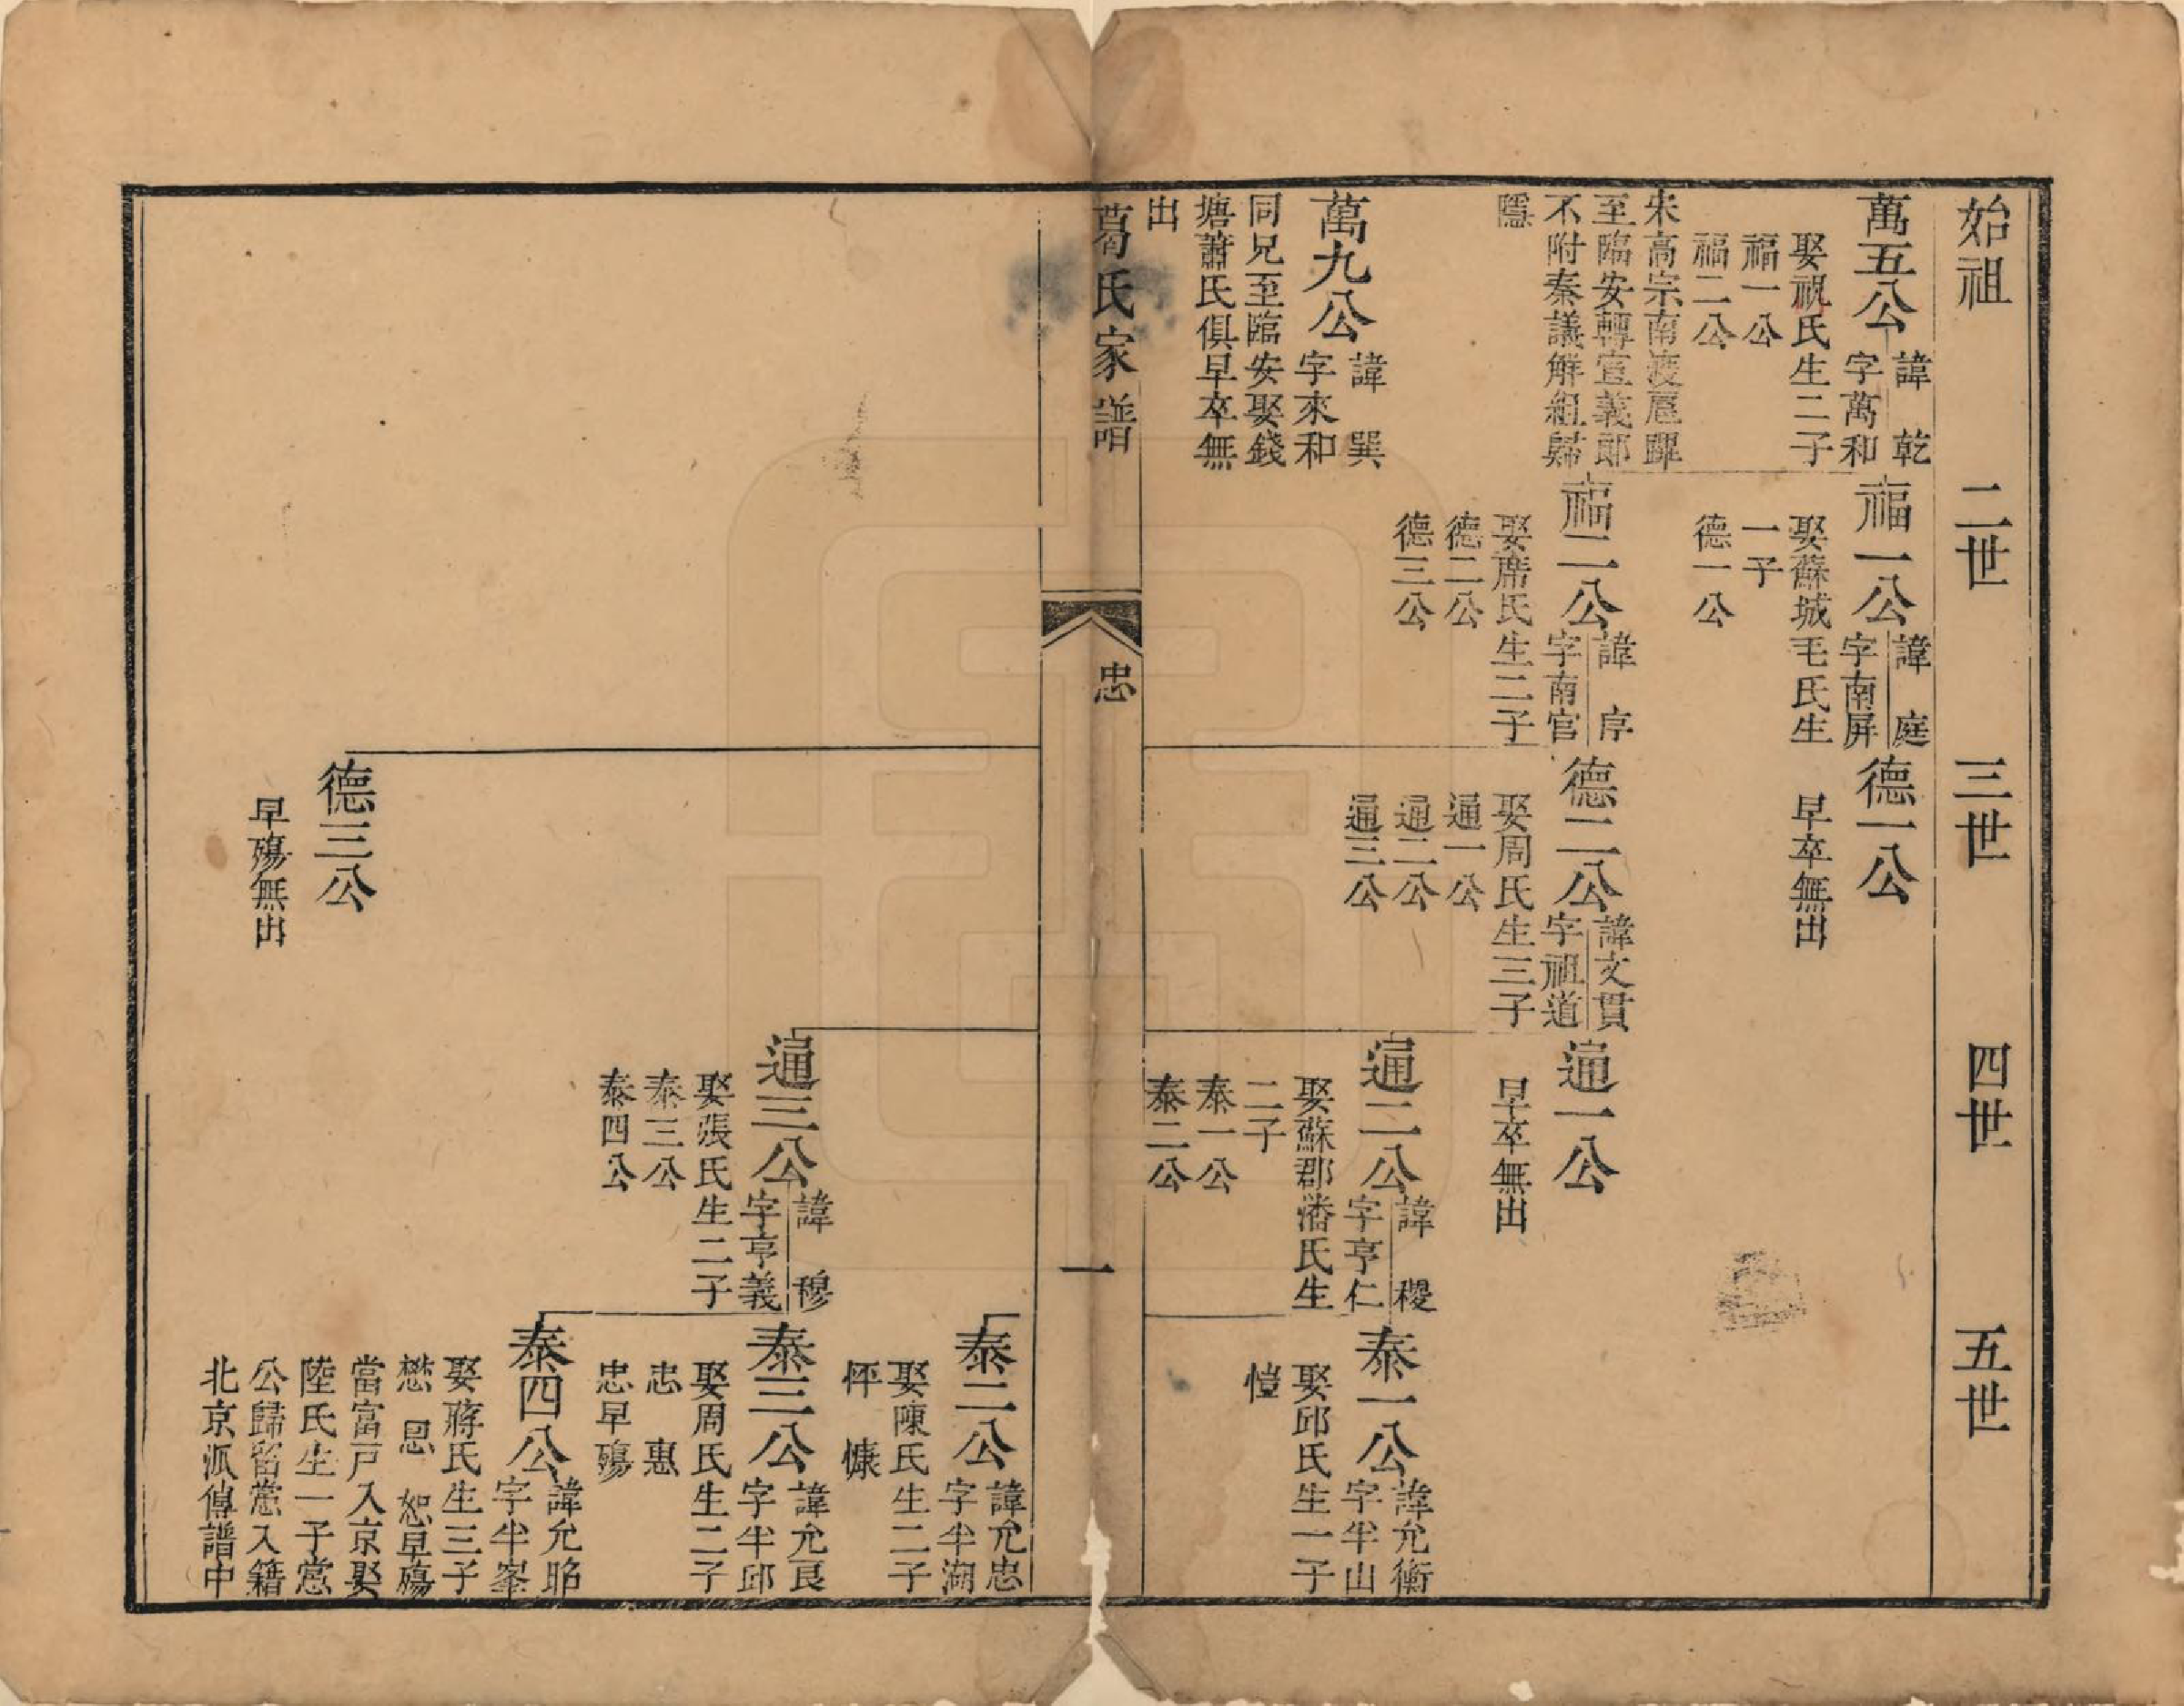 始祖
二世
三世
四世
五世
萬五公
諱乾
字萬和
娶祝氏生二子
福一公
福二公
宋高宗南渡扈蹕
至臨安轉宣義郎
不附秦議解組歸
隱
萬九公
諱巽
字來和
同兄至臨安娶錢
塘蕭氏俱早卒無
出
福一公
諱庭
字南屏
娶蘇城毛氏生
一子
德一公
福二公
諱序
字南宮
娶席氏生二子
德二公
德三公
德一公
早卒無出
德二公
諱文貫
字祖道
娶周氏生三子
通一公
通二公
通三公
通一公
早卒無出
通二公
諱稷
字亨仁
娶蘇郡潘氏生
二子
泰一公
泰二公
泰一公
諱允衡
字半山
娶邱氏生一子
愷
葛氏家譜
忠
一
德三公
早殤無出
通三公
諱穆
字亨義
娶張氏生二子
泰三公
泰四公
泰二公
諱允忠
字半湖
娶陳氏生二子
怀 慷
泰三公
諱允良
字半邱
娶周氏生二子
忠 惠
忠早殤
泰四公
諱允昭
字半峯
娶蔣氏生三子
愻 恩 恕早殤
當富戸入京娶
陸氏生一子憲
公歸留憲入籍
北京派傳譜中